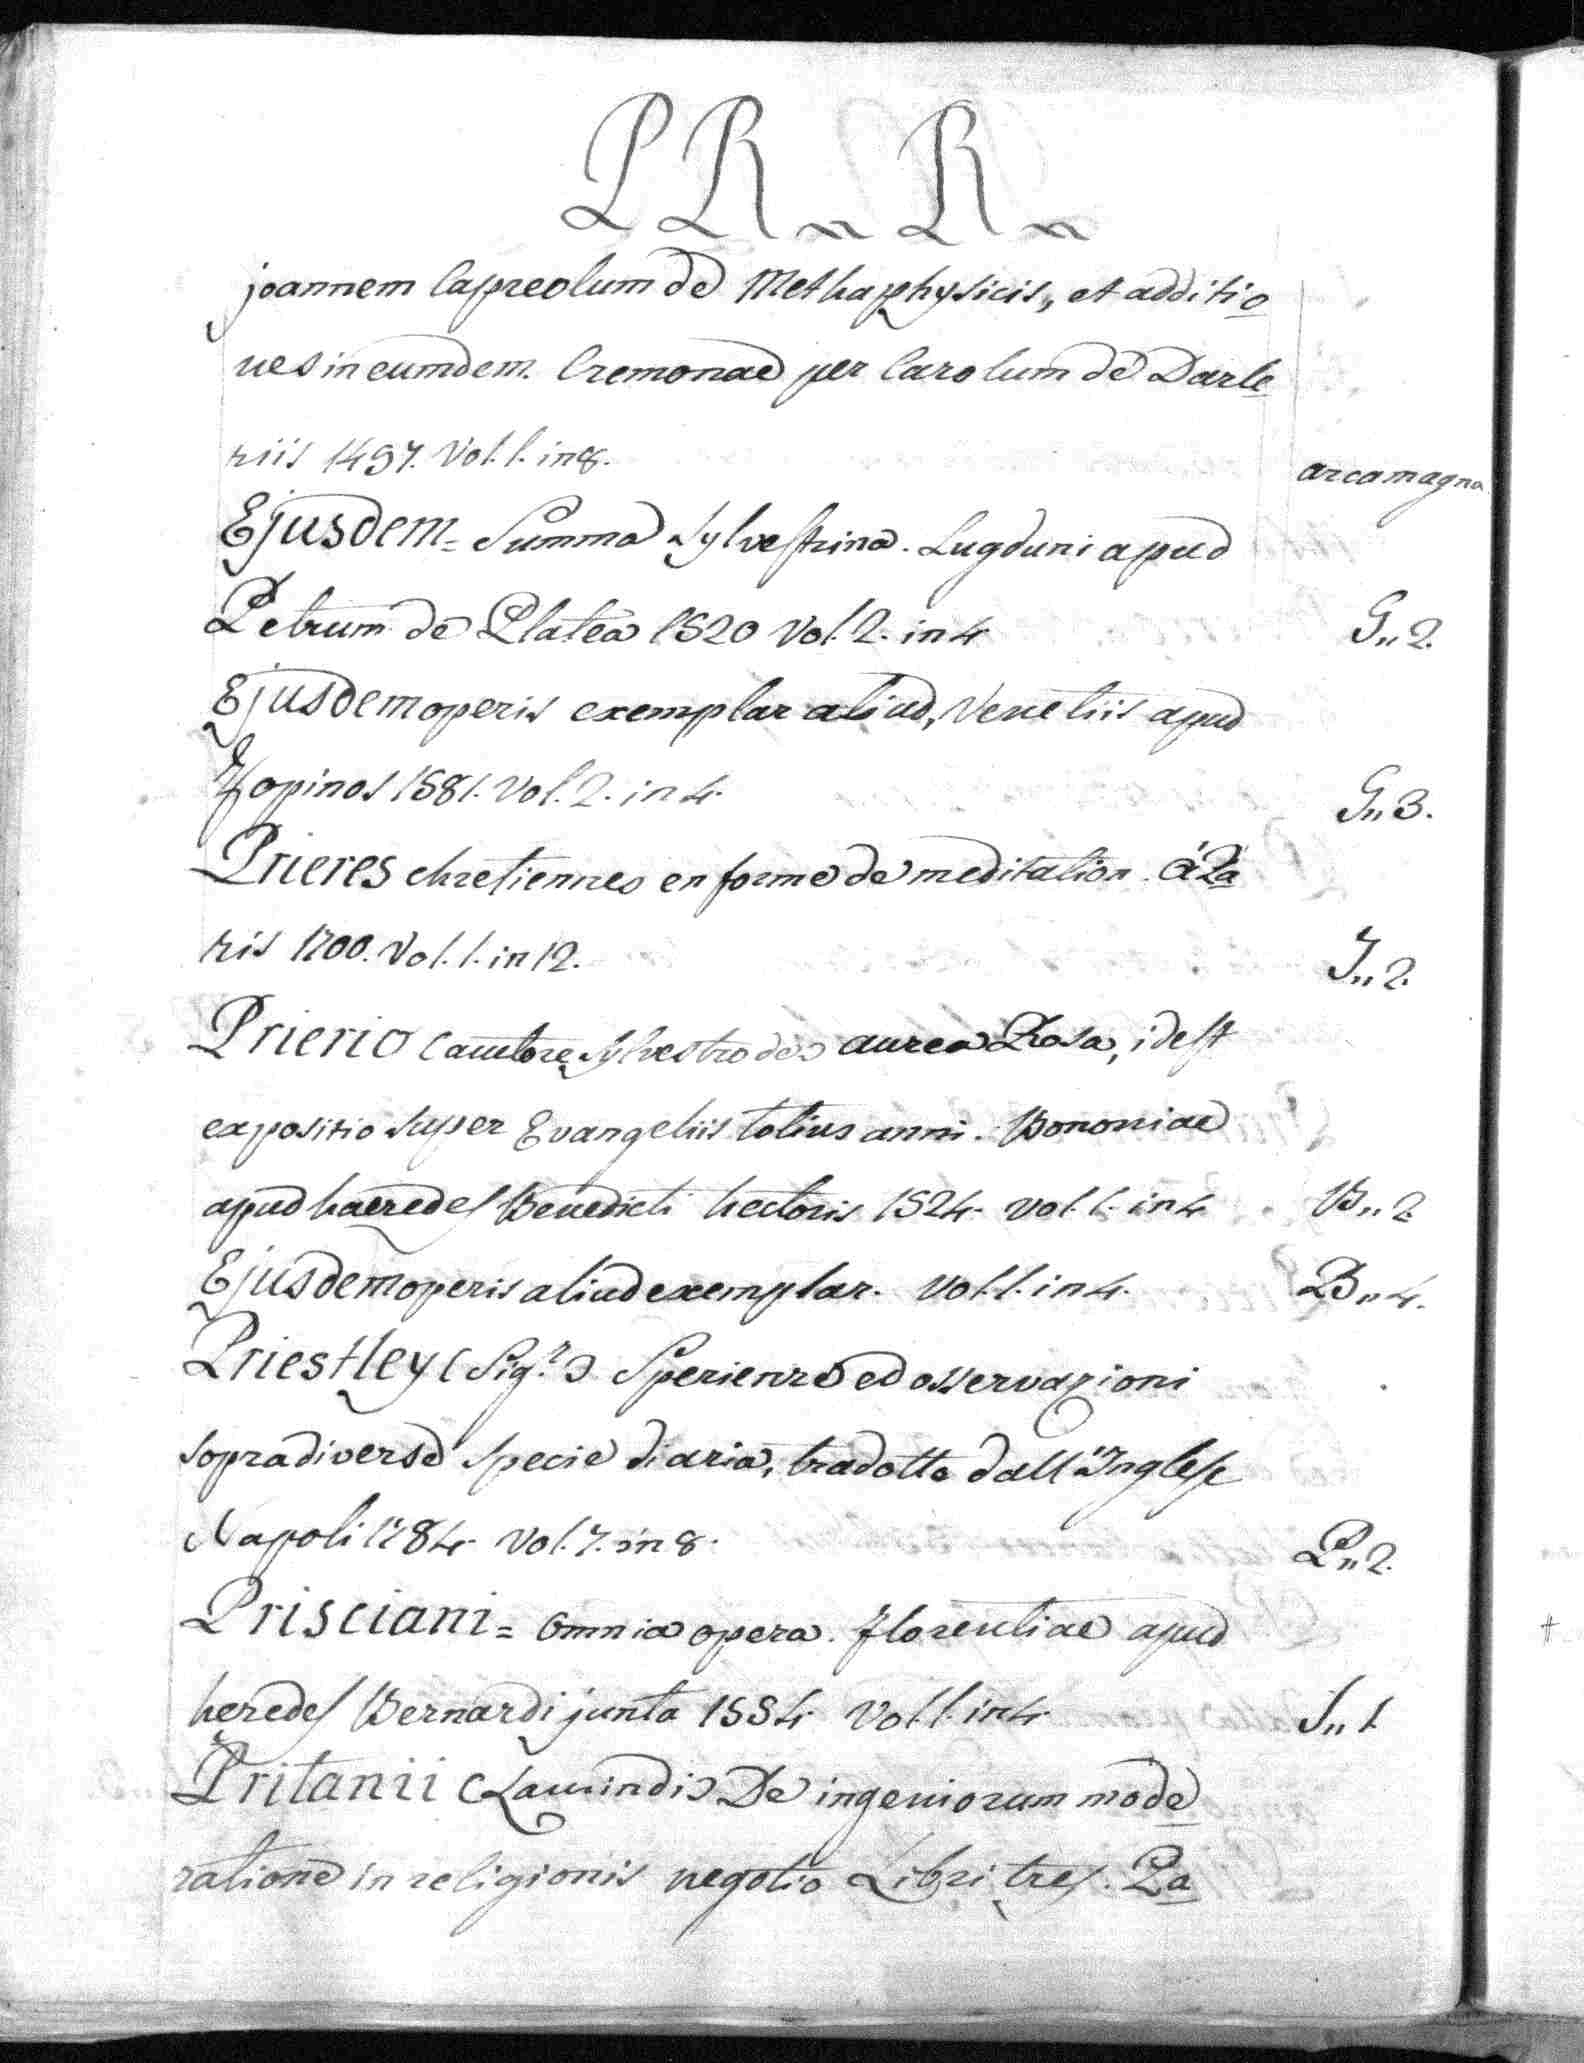 PR„ R„
joannem Capreolum de Methaphysicis, et additio
nes in eumdem. Cremonae per Carolum de Darle
riis 1497. Vol. 1. in 8. arca magna
Ejusdem = Summa Sylvestrina. Lugduni apud
Petrum de Platea 1520 Vol. 2. in 4 G„ 2.
Ejusdem operis exemplar aliud, Venetiis apud
Zopinos 1581. Vol. 2. in 4. G„ 3.
Prieres chretiennes en forme de meditation. á Pa
ris 1700. Vol. 1. in 12. J„ 2.
Prierio (autore Sylvestro de) aurea Rosa, idest
expositio super Evangeliis totius anni. Bononiae
apud haeredes Benedicti hectoris 1524. vol. 1. in 4 B„ 2.
Ejusdem operis aliud exemplar. Vol. 1. in 4. B„ 4.
Priestley (Sig.r) Sperienze ed osservazioni
sopra diverse specie di aria, tradotte dall'Inglese
Napoli 1784. Vol. 7. in 8. P„ 2.
Prisciani = Omnia opera. Florentiae apud
heredes Bernardi junta 1554. Vol. 1. in 4. S„ 1.
Pritanii (Lamindi) De ingeniorum mode
ratione in religionis negotio Libri tres. Pa